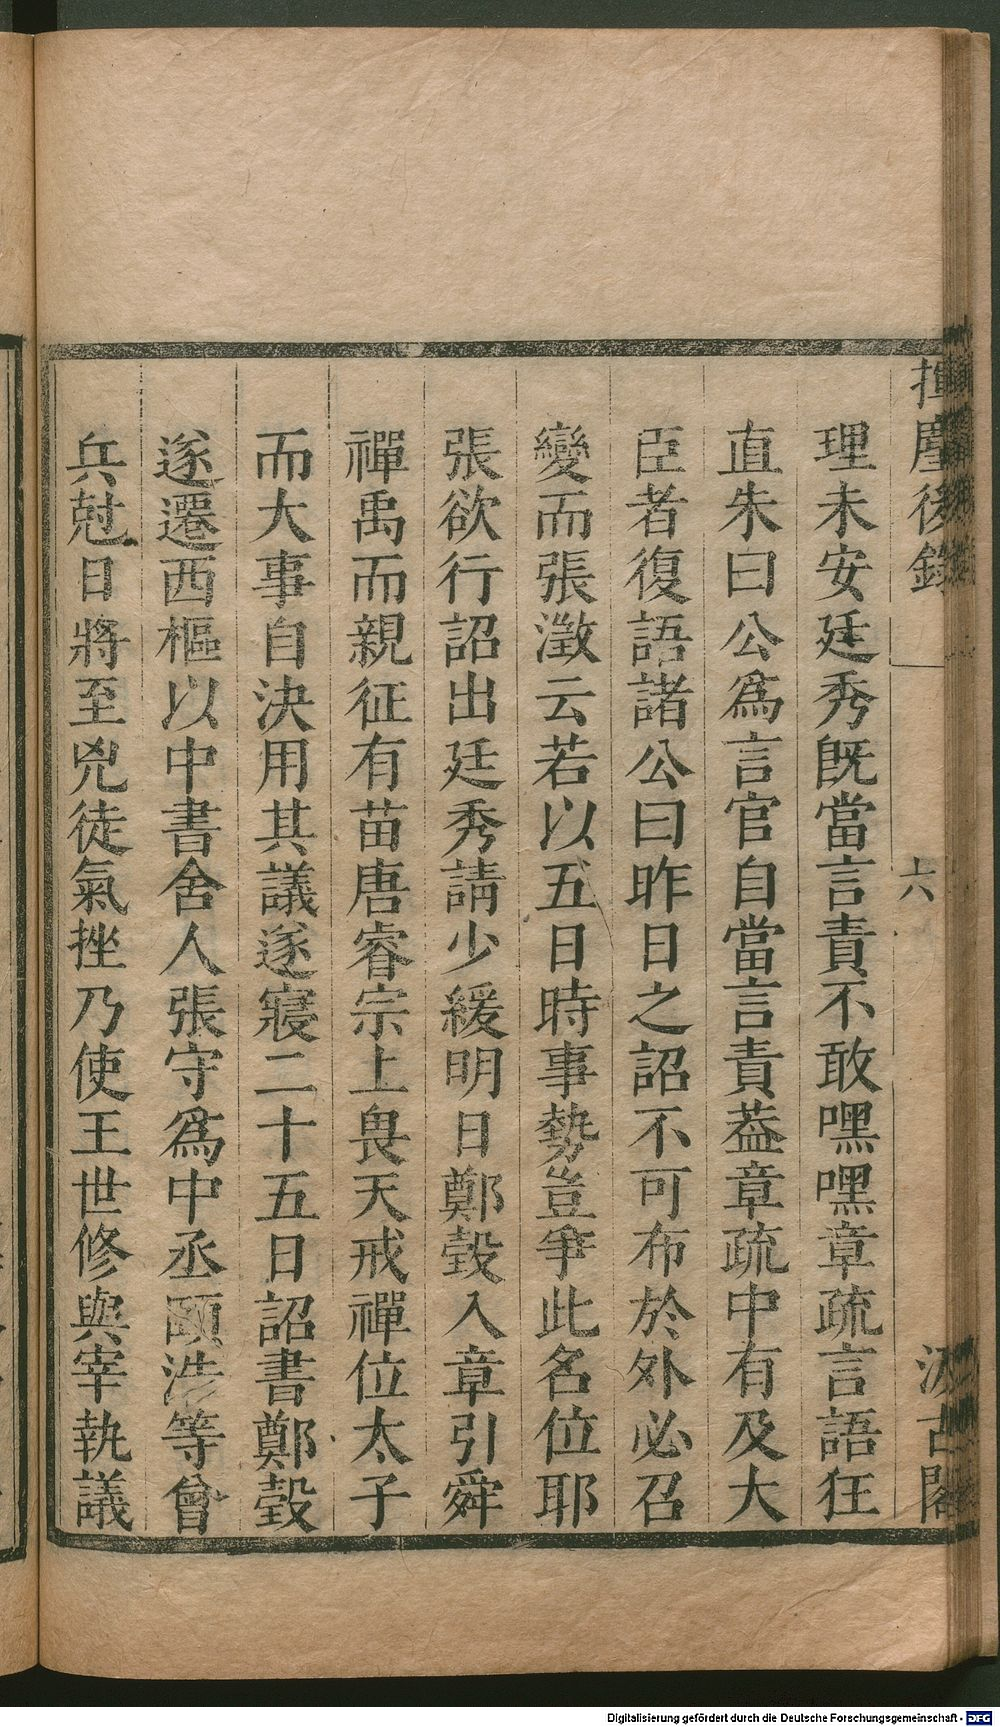 揮麈後錄
六
汲古閣
理未安廷秀旣當言責不敢嘿嘿章疏言語狂
直朱曰公爲言官自當言責葢章疏中有及大
臣者復語諸公曰昨日之詔不可布於外必召
變而張澂云若以五日時事勢豈爭此名位耶
張欲行詔出廷秀請少緩明日鄭瑴入章引舜
禪禹而親征有苗唐睿宗上畏天戒禪位太子
而大事自決用其議遂寢二十五日詔書鄭瑴
遂遷西樞以中書舍人張守爲中丞頤浩等會
兵尅日將至兇徒氣挫乃使王世修與宰執議
Digitalisierung gefördert durch die Deutsche Forschungsgemeinschaft - DFG